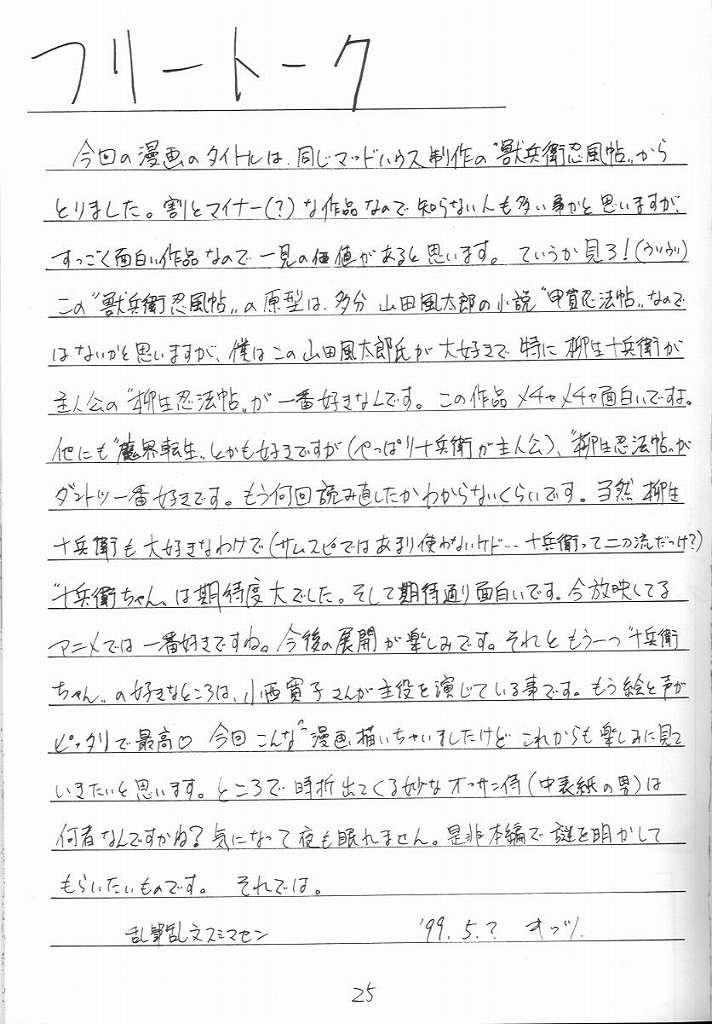 フリートーク
今回の漫画のタイトルは、同じマッドハウス制作の〝獣兵衛忍風帖〟から
とりました。割とマイナー(?)な作品なので知らない人も多い事かと思いますが、
すっごく面白い作品なので一見の価値があると思います。ていうか見ろ!(ウリウリ)
この〝獣兵衛忍風帖〟の原型は、多分 山田風太郎の小説〝甲賀忍法帖〟なので
はないかと思いますが、僕はこの山田風太郎氏が大好きで 特に 柳生十兵衛が
主人公の〝柳生忍法帖〟が一番好きなんです。この作品 メチャメチャ面白いですよ。
他にも〝魔界転生〟とかも好きですが(やっぱり十兵衛が主人公)、〝柳生忍法帖〟が
ダントツ一番好きです。もう何回読み直したかわからないくらいです。当然 柳生
十兵衛も大好きなわけで(サムスピではあまり使わないケド…十兵衛って二刀流だっけ?)
〝十兵衛ちゃん〟は期待度大でした。そして期待通り面白いです。今放映してる
アニメでは一番好きですね。今後の展開が楽しみです。それともう一つ〝十兵衛
ちゃん〟の好きなところは、小西寛子さんが主役を演じている事です。もう絵と声が
ピッタリで最高♡ 今回こんな〝漫画〟描いちゃいましたけど これからも楽しみに見て
いきたいと思います。ところで時折出てくる妙なオッサン侍(中表紙の男)は
何者なんですかね?気になって夜も眠れません。是非本編で謎を明かして
もらいたいものです。 それでは。
乱筆乱文スミマセン '99.5.?
25